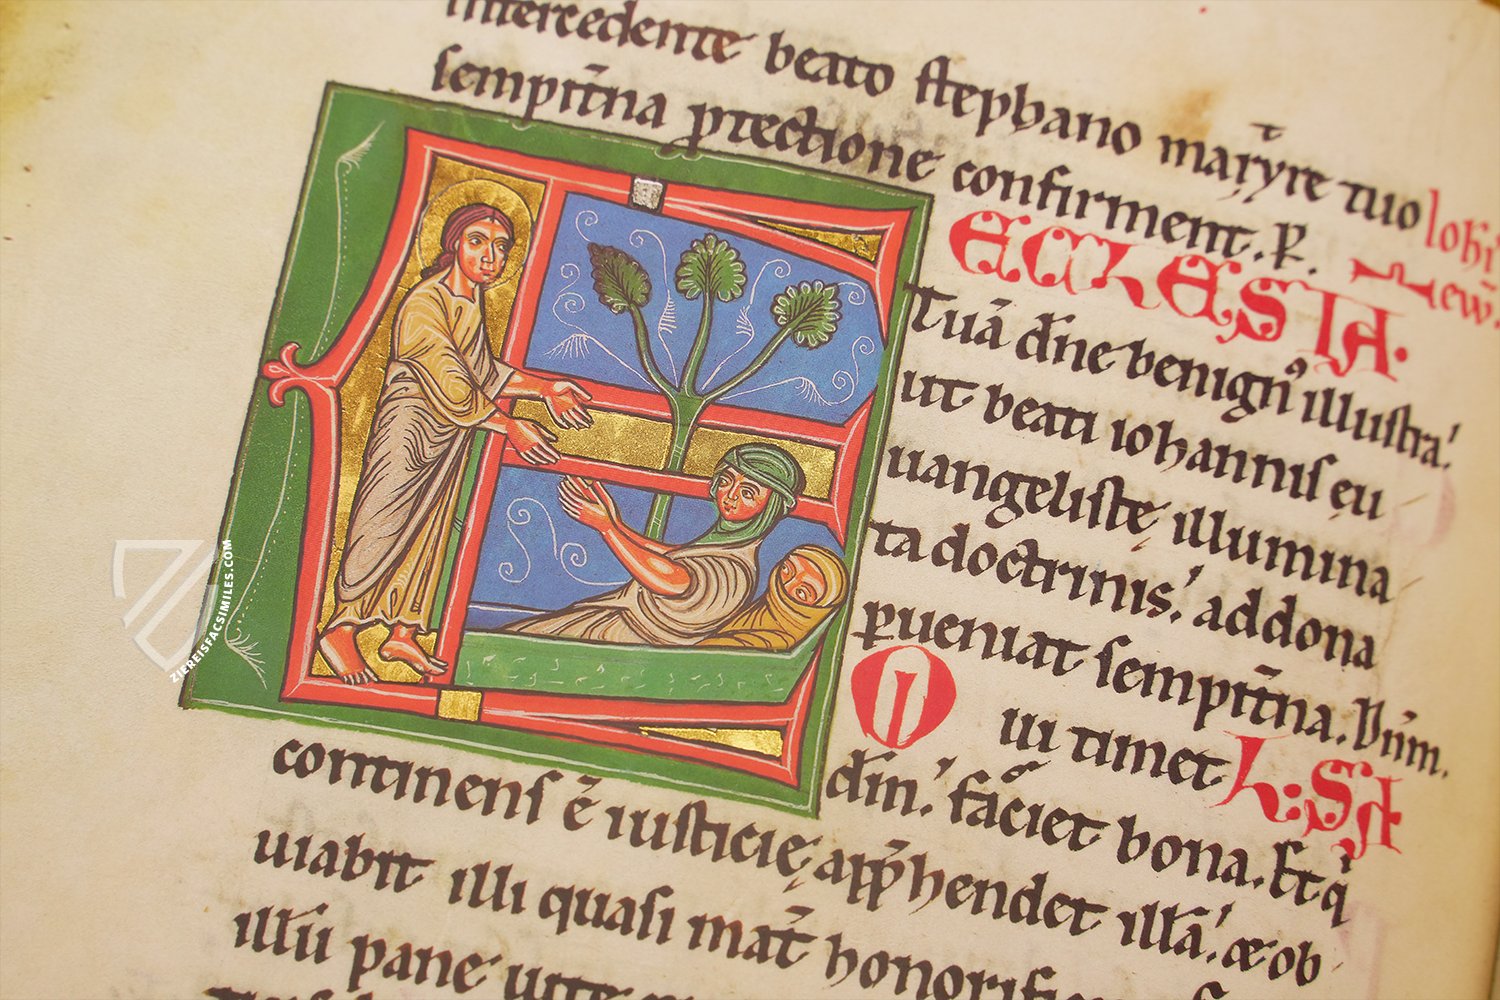 intercedente beato stephano mar̄tyre tuo
sempit̄na ꝓtectione confirment. P̄.
Iohī
ew̄.
ECCLESIĀ.
Tuā dn̄e benignꝰ illustra.
ut beati iohannis eu
uangelistę illumina
ta doctrinis. ad dona
ꝑueniat sempit̄na. P̄ dn̄m.
Qui timet L: SA
dn̄m. faciet bona. Et q̇
continens ē iusticię app̄hendet illā. & ob
uiabit illi quasi mat̄ honorifi
illū pane uite
ZIEREISFACSIMILES.COM